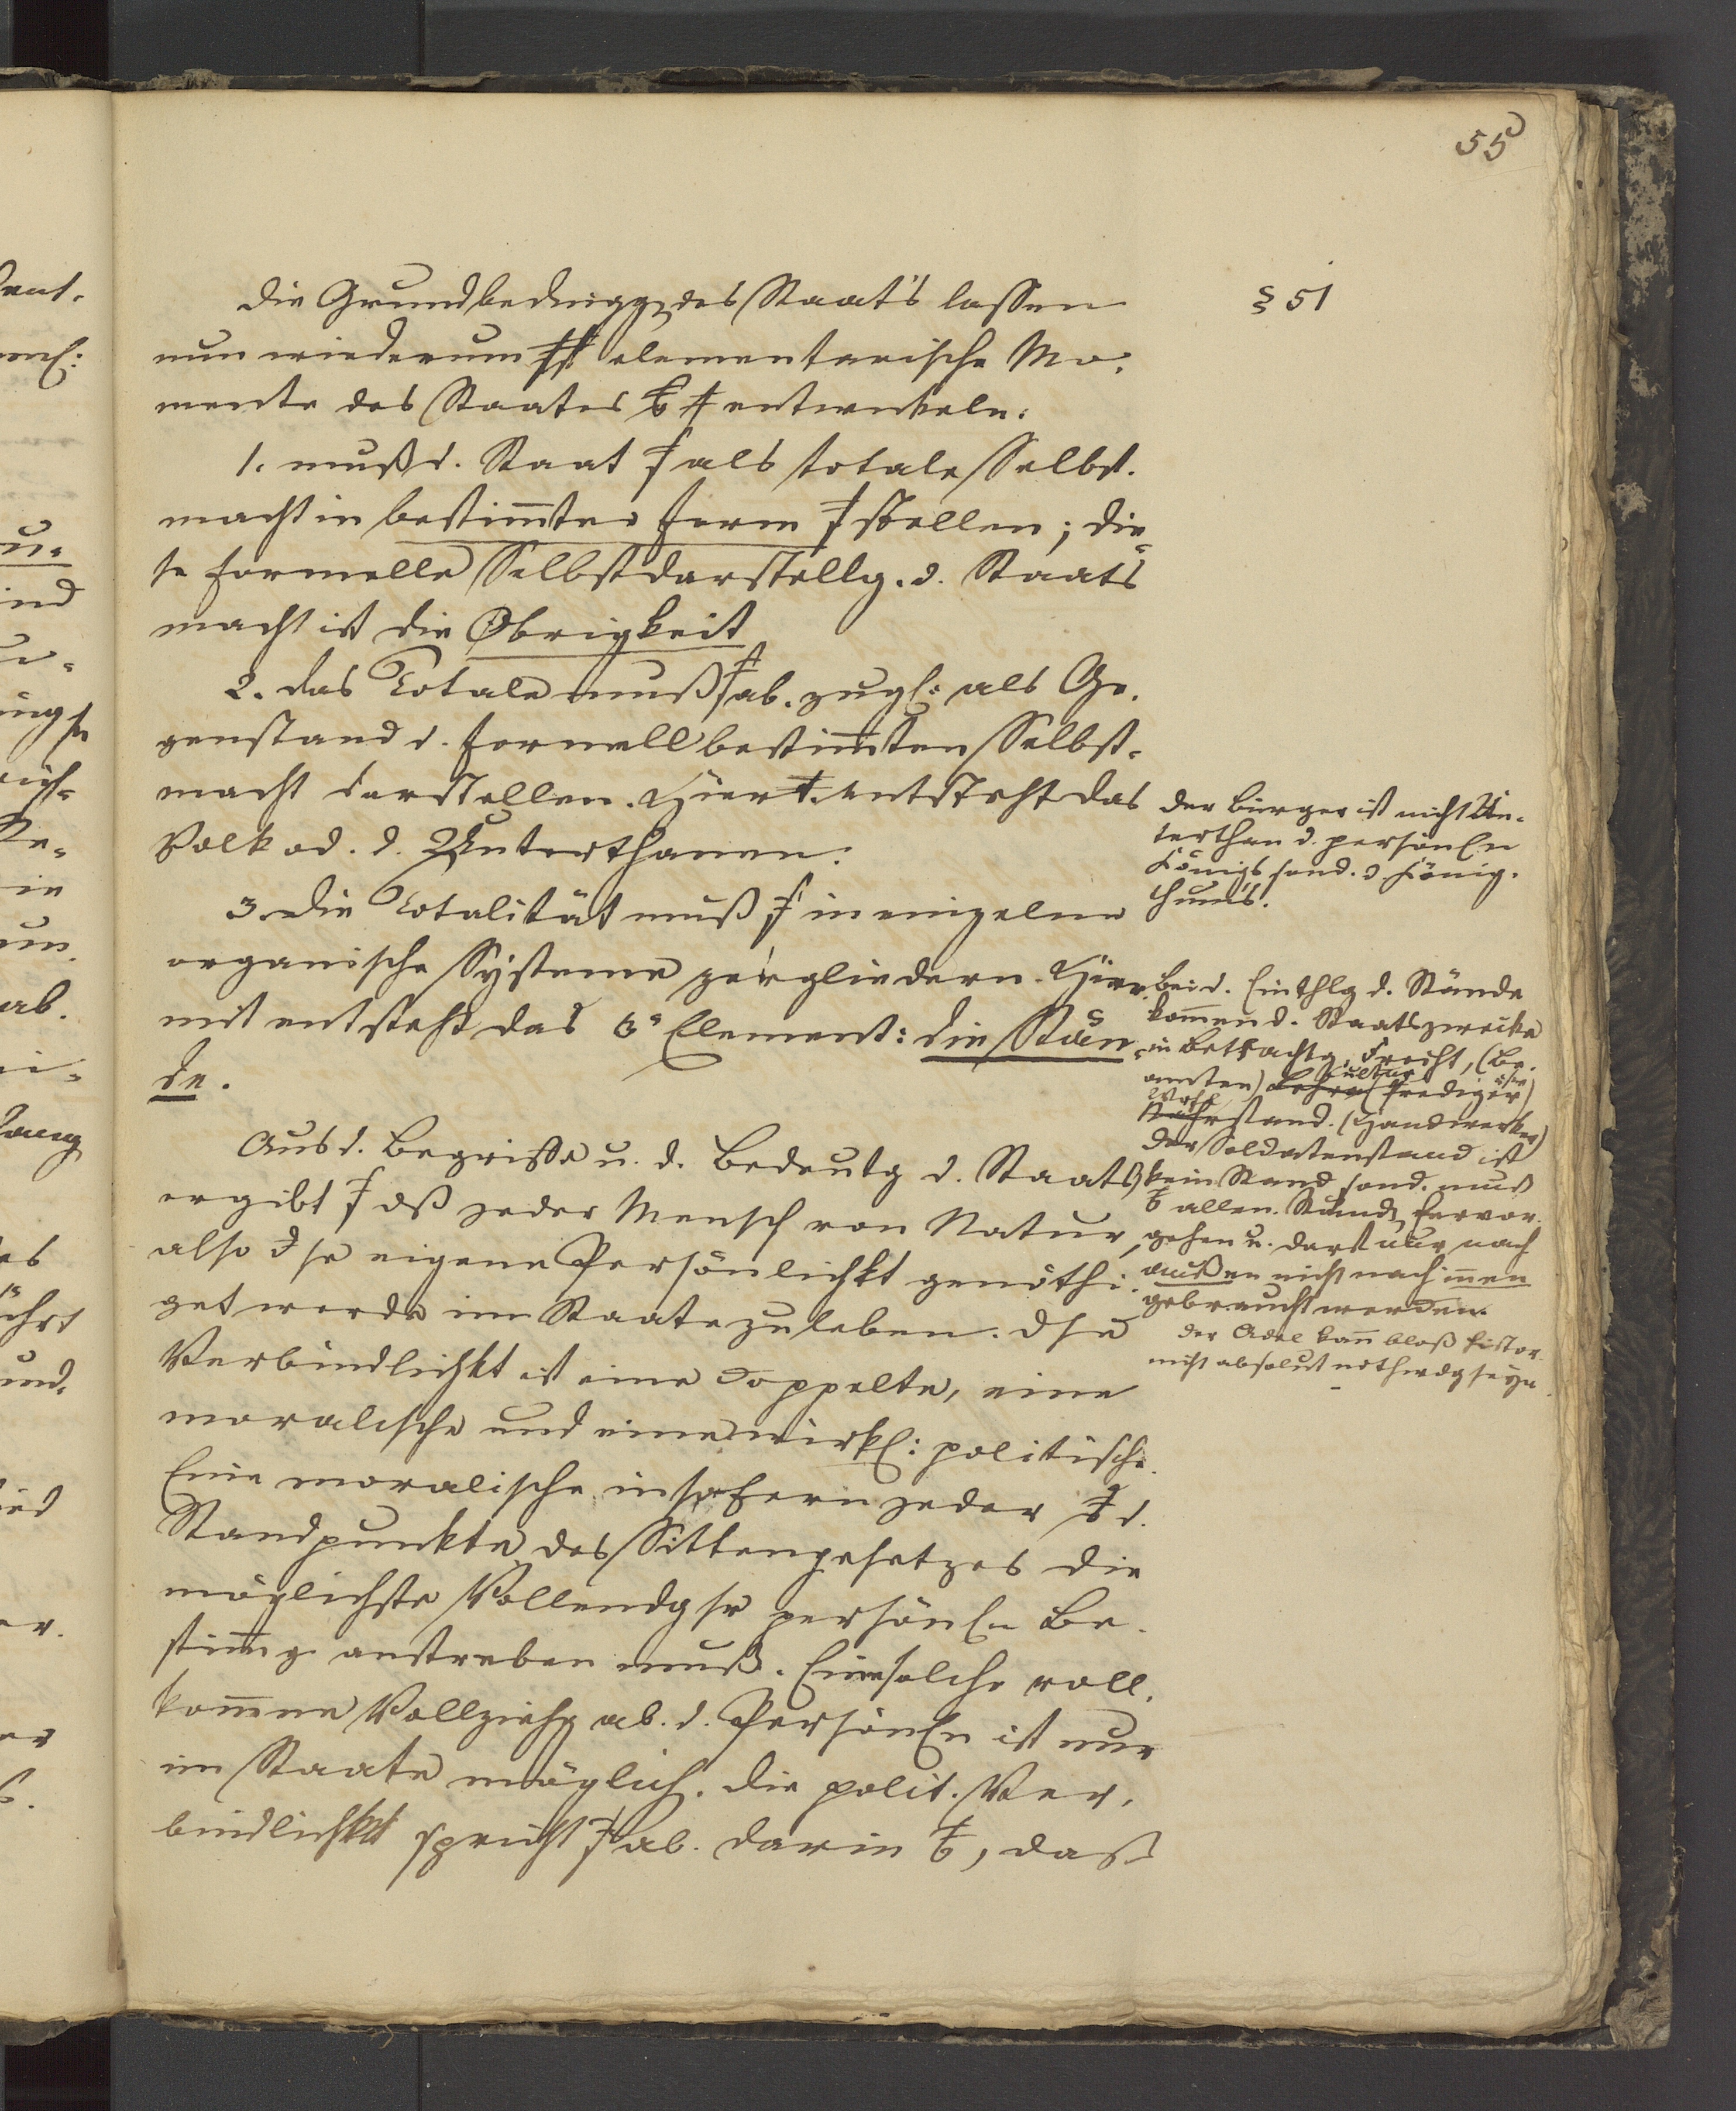 55
§ 51
Die Grundbedingg des Staat's lassen
nun wiederum elementarische Mo-
mente des Staates entwickeln.
1. muß d. Staat als totale Selbst-
macht in bestim̄ter Form stellen; die-
se formelle Selbstdarstellg. d. Staats
macht ist die Obrigkeit
2. das Totale muß ab. zugl: als Ge-
genstand d. formell bestim̄ten Selbst-
macht darstellen. Hier entsteht das
Volk od. d. Unterthanen.
3. Die Totalität muß in einzelne
organische Systeme zergliedern. Hier-
mit entsteht das 3s Element: die Stän-
de.
Aus d. Begriffe u. d. Bedeutg d. Staats
ergibt dß jeder Mensch von Natur,
also se eigene Persönlichkt genöthi-
get werde im Staate zu leben. Dse
Verbindlichkt ist eine doppelte, eine
moralische und eine wirkl: politische.
Eine moralische insofern jeder d.
Standpunkte des Sittengesetzes die
möglichste Vollendg sr persönln Be-
stim̄g anstreben muß. Eine solche voll-
kom̄ne Vollziehg ab. d. Persönln ist nur
im Staate möglich. Die polit. Ver-
bindlichkt spricht ab. darin, daß
Der Bürger ist nicht Un-
terthan d. persönln
Königs sond. d König-
thum's.
bei d. Einthlg d. Stände
kom̄en d. Staatszwecke
in Betrachtg, Recht, (Be-
amten) Lehre Cultur (Prediger)
Nährstand. (Handwerker)
Der Soldatenstand ist
kein Stand, sond. muß
allen Ständ hervor-
gehen u. darf nur nach
außen nicht nach innen
gebraucht werden.
Der Adel kan̄ bloß histor.
nicht absolut nothwdg seyn